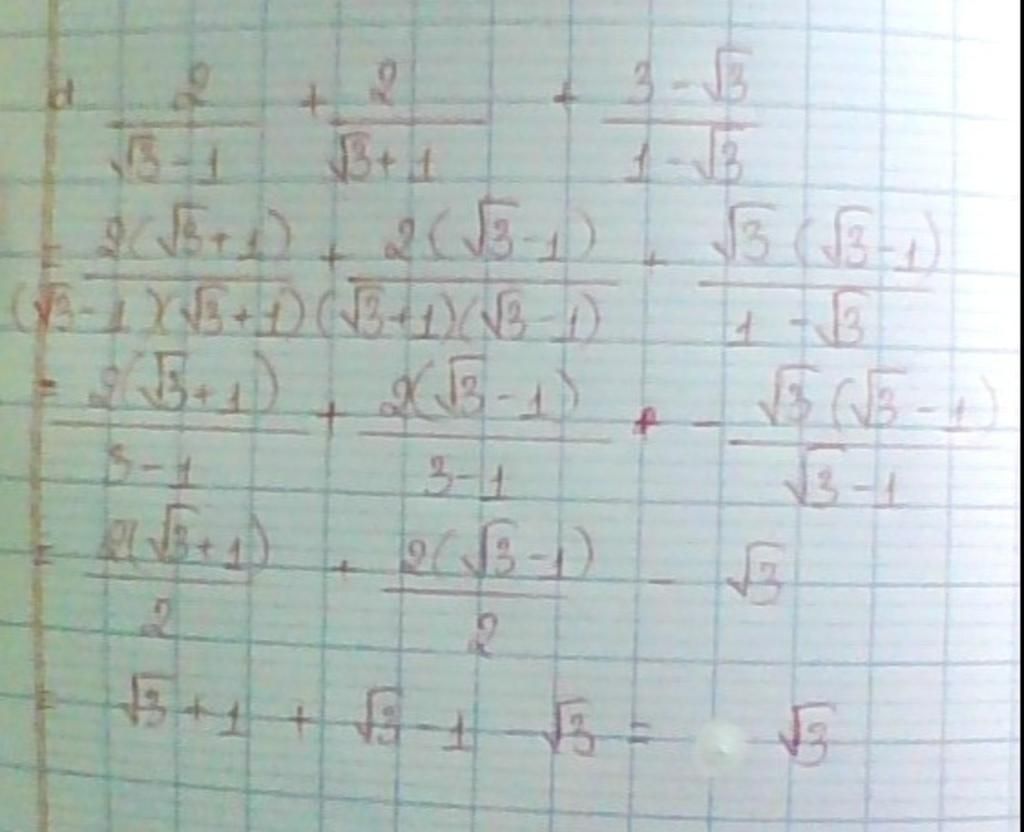 d 2/(√3 - 1) + 2/(√3 + 1) + (3 - √3)/(1 - √3)
= 2(√3 + 1)/((√3 - 1)(√3 + 1)) + 2(√3 - 1)/((√3 + 1)(√3 - 1)) + √3(√3 - 1)/(1 - √3)
= 2(√3 + 1)/(3 - 1) + 2(√3 - 1)/(3 - 1) + - √3(√3 - 1)/(√3 - 1)
= 2(√3 + 1)/2 + 2(√3 - 1)/2 - √3
= √3 + 1 + √3 - 1 - √3 = √3